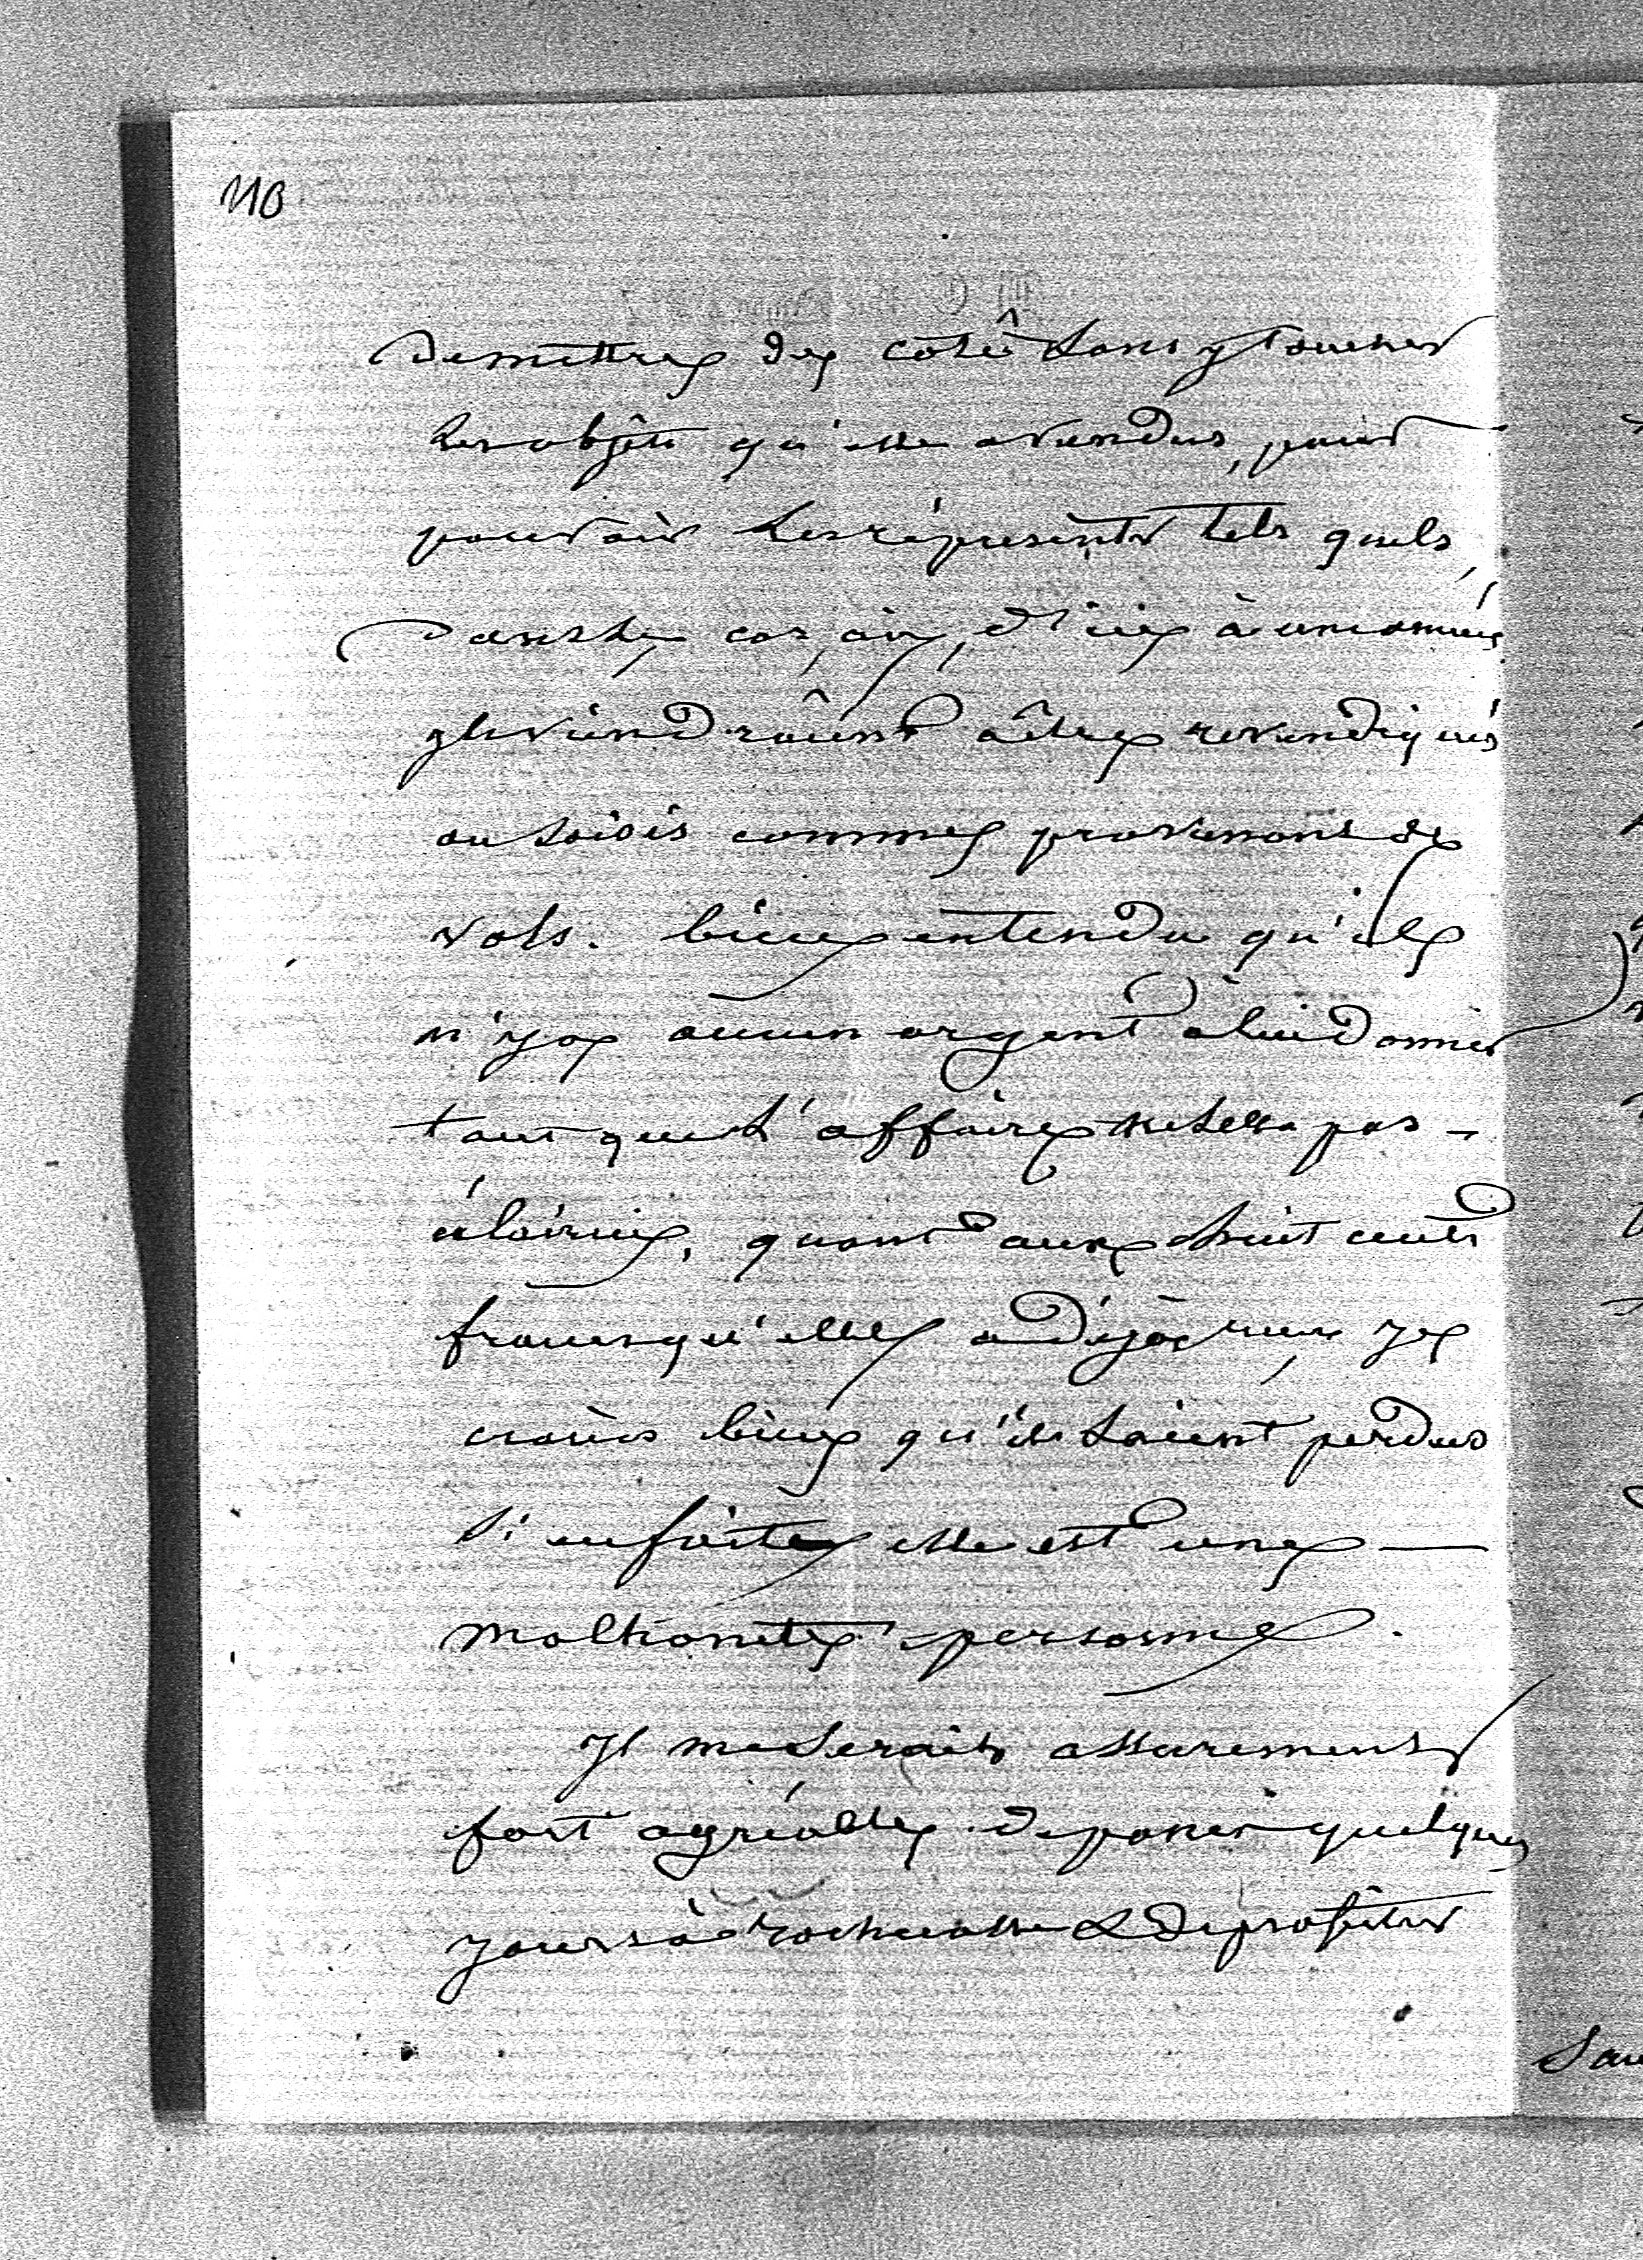 de mettre de côté sans y toucher
les objets qu'elle a vendus, pour
pouvoir les représenter tels quels,
dans le cas, où, d'ici à une année
ils viendraient à être revendiqués
ou saisis comme provenant de
vols. bien entendu qu'il
n'y a aucun argent à lui donner
tant que l'affaire ne sera pas -
éclaircie, quant aux huit cents
francs qu'elle a déjà reçus, je
crois bien qu'ils soient perdus
si en fait elle est une —
malhonnête personne.
Il me serait assurement
fort agréable de passer quelques
jours à & de profiter